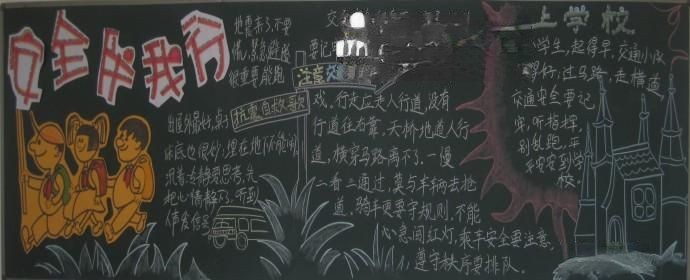 安全伴我行
地震来了不要
慌,紧急避险
很重要
抗震自救歌
出屋外最好,桌子
床底也很妙,埋在地下不能闹,
沉着冷静要思考,先
把心情静下,听到
人声发信号
注意交通
戏,行走应走人行道,没有
行道往右靠,天桥地道人行
道,横穿马路离不了,一慢
二看三通过,莫与车辆去抢
道,骑车更要守规则,不能
心急闯红灯,乘车安全要注意,
遵守秩序要排队。
上学校
小学生,起得早,交通小队
过马路,走横道,
交通安全要记
牢,听指挥,
别乱跑,平
平安安到学
校。